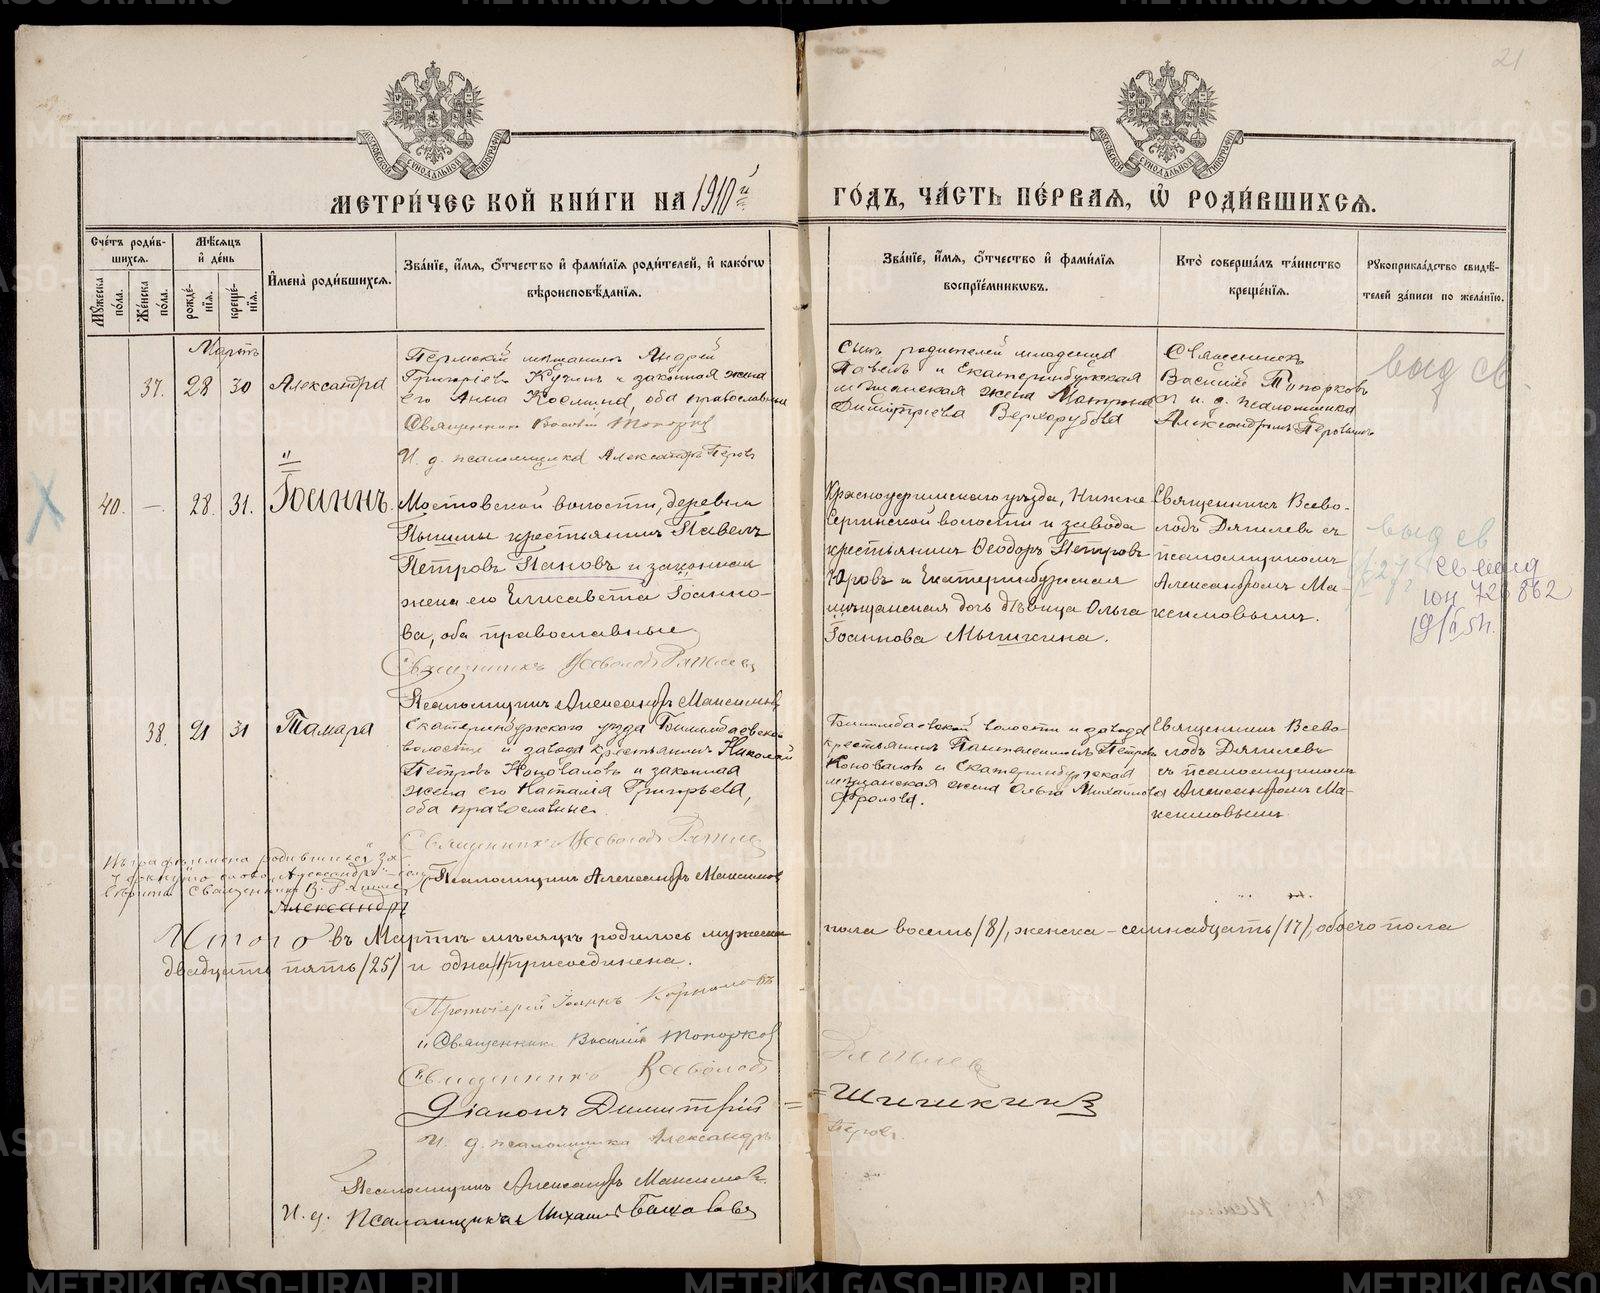 21
МОСКОВСКОЙ СѴНОДАЛЬНОЙ ТИПОГРАФІИ
МОСКОВСКОЙ СѴНОДАЛЬНОЙ ТИПОГРАФІИ
МЕТРИ́ЧЕСКОЙ КНИ́ГИ НА 1910й ГО́ДЪ, ЧА́СТЬ ПЕ́РВАЯ, Ѡ РОДИ́ВШИХСЯ.
Сче́тъ роди́в-
шихся.
Мѣ́сяцъ
и де́нь
Мꙋжеска по́ла.
Же́нска по́ла.
рожде́-
нія.
креще́-
нія.
Имена̀ роди́вшихся.
Зва́ніе, и́мя, о́тчество и фами́лія роди́телей, и како́гѡ
вѣроисповѣ́данія.
Зва́ніе, и́мя, о́тчество и фами́лія
воспріе́мниковъ.
Кто̀ соверша́лъ та́инство
креще́нія.
Рꙋкоприкла́дство свидѣ́-
телей за́писи по жела́нію.
Мартъ
37. 28 30 Александра
Пермскій мѣщанинъ Андрей
Григоріевъ Кучинъ и законная жена
его Анна Космина, оба православные
Священникъ Василій Топорковъ
И. д. псаломщика Александръ Перовъ
Сынъ родителей младенца
Павелъ и Екатеринбургская
мѣщанская жена Матрона
Димитріева Верхорубова
Священникъ
Василій Топорковъ
и и. д. псаломщика
Александромъ Перовымъ
выд св.
40. — 28. 31. Іоаннъ.
Мостовской волости, деревни
Пышмы крестьянинъ Павелъ
Петровъ Пановъ и законная
жена его Елисавета Іоанно-
ва, оба православные
Священникъ Всеволодъ Дягилевъ
Псаломщикъ Александръ Максимовъ
Красноуфимскаго уѣзда, Нижне
Сергинской волости и завода
крестьянинъ Ѳеодоръ Петровъ
Юровъ и Екатеринбургская
мѣщанская дочь дѣвица Ольга
Іоаннова Мышкина.
Священникъ Всево-
лодъ Дягилевъ съ
псаломщикомъ
Александромъ Ма-
ксимовымъ.
выд св
св выд
юн 726862
38. 21 31 Тамара
Екатеринбургскаго уѣзда Билимбаевской
волости и завода крестьянинъ Николай
Петровъ Коноваловъ и законная
жена его Наталія Григорьева,
оба православные.
Священникъ Всеволодъ Дягилевъ
Псаломщикъ Александръ Максимовъ
Билимбаевской волости и завода
крестьянинъ Пантелеимонъ Петровъ
Коноваловъ и Екатеринбургская
мѣщанская жена Ольга Михайлова
Фролова.
Священникъ Всево-
лодъ Дягилевъ
съ псаломщикомъ
Александромъ Ма-
ксимовымъ
Въ графѣ имена родившихся за-
черкнуто слово „Александръ"
вѣрно Священникъ В. Дягилевъ
Александръ
Итого въ Мартѣ мѣсяцѣ родилось мужеска пола восемь /8/, женска – семнадцать /17/, обоего пола
двадцать пять /25/ и одна /1/ присоединена.
Протоіерей Іоаннъ
Священникъ Василій Топорковъ
Священникъ Всеволодъ Дягилевъ
Діаконъ Димитрій = = Шишкинъ
И. д. псаломщика Александръ Перовъ.
Псаломщикъ Александръ Максимовъ.
И. д. Псаломщика Михаилъ
METRIKI.GASO-URAL.RU